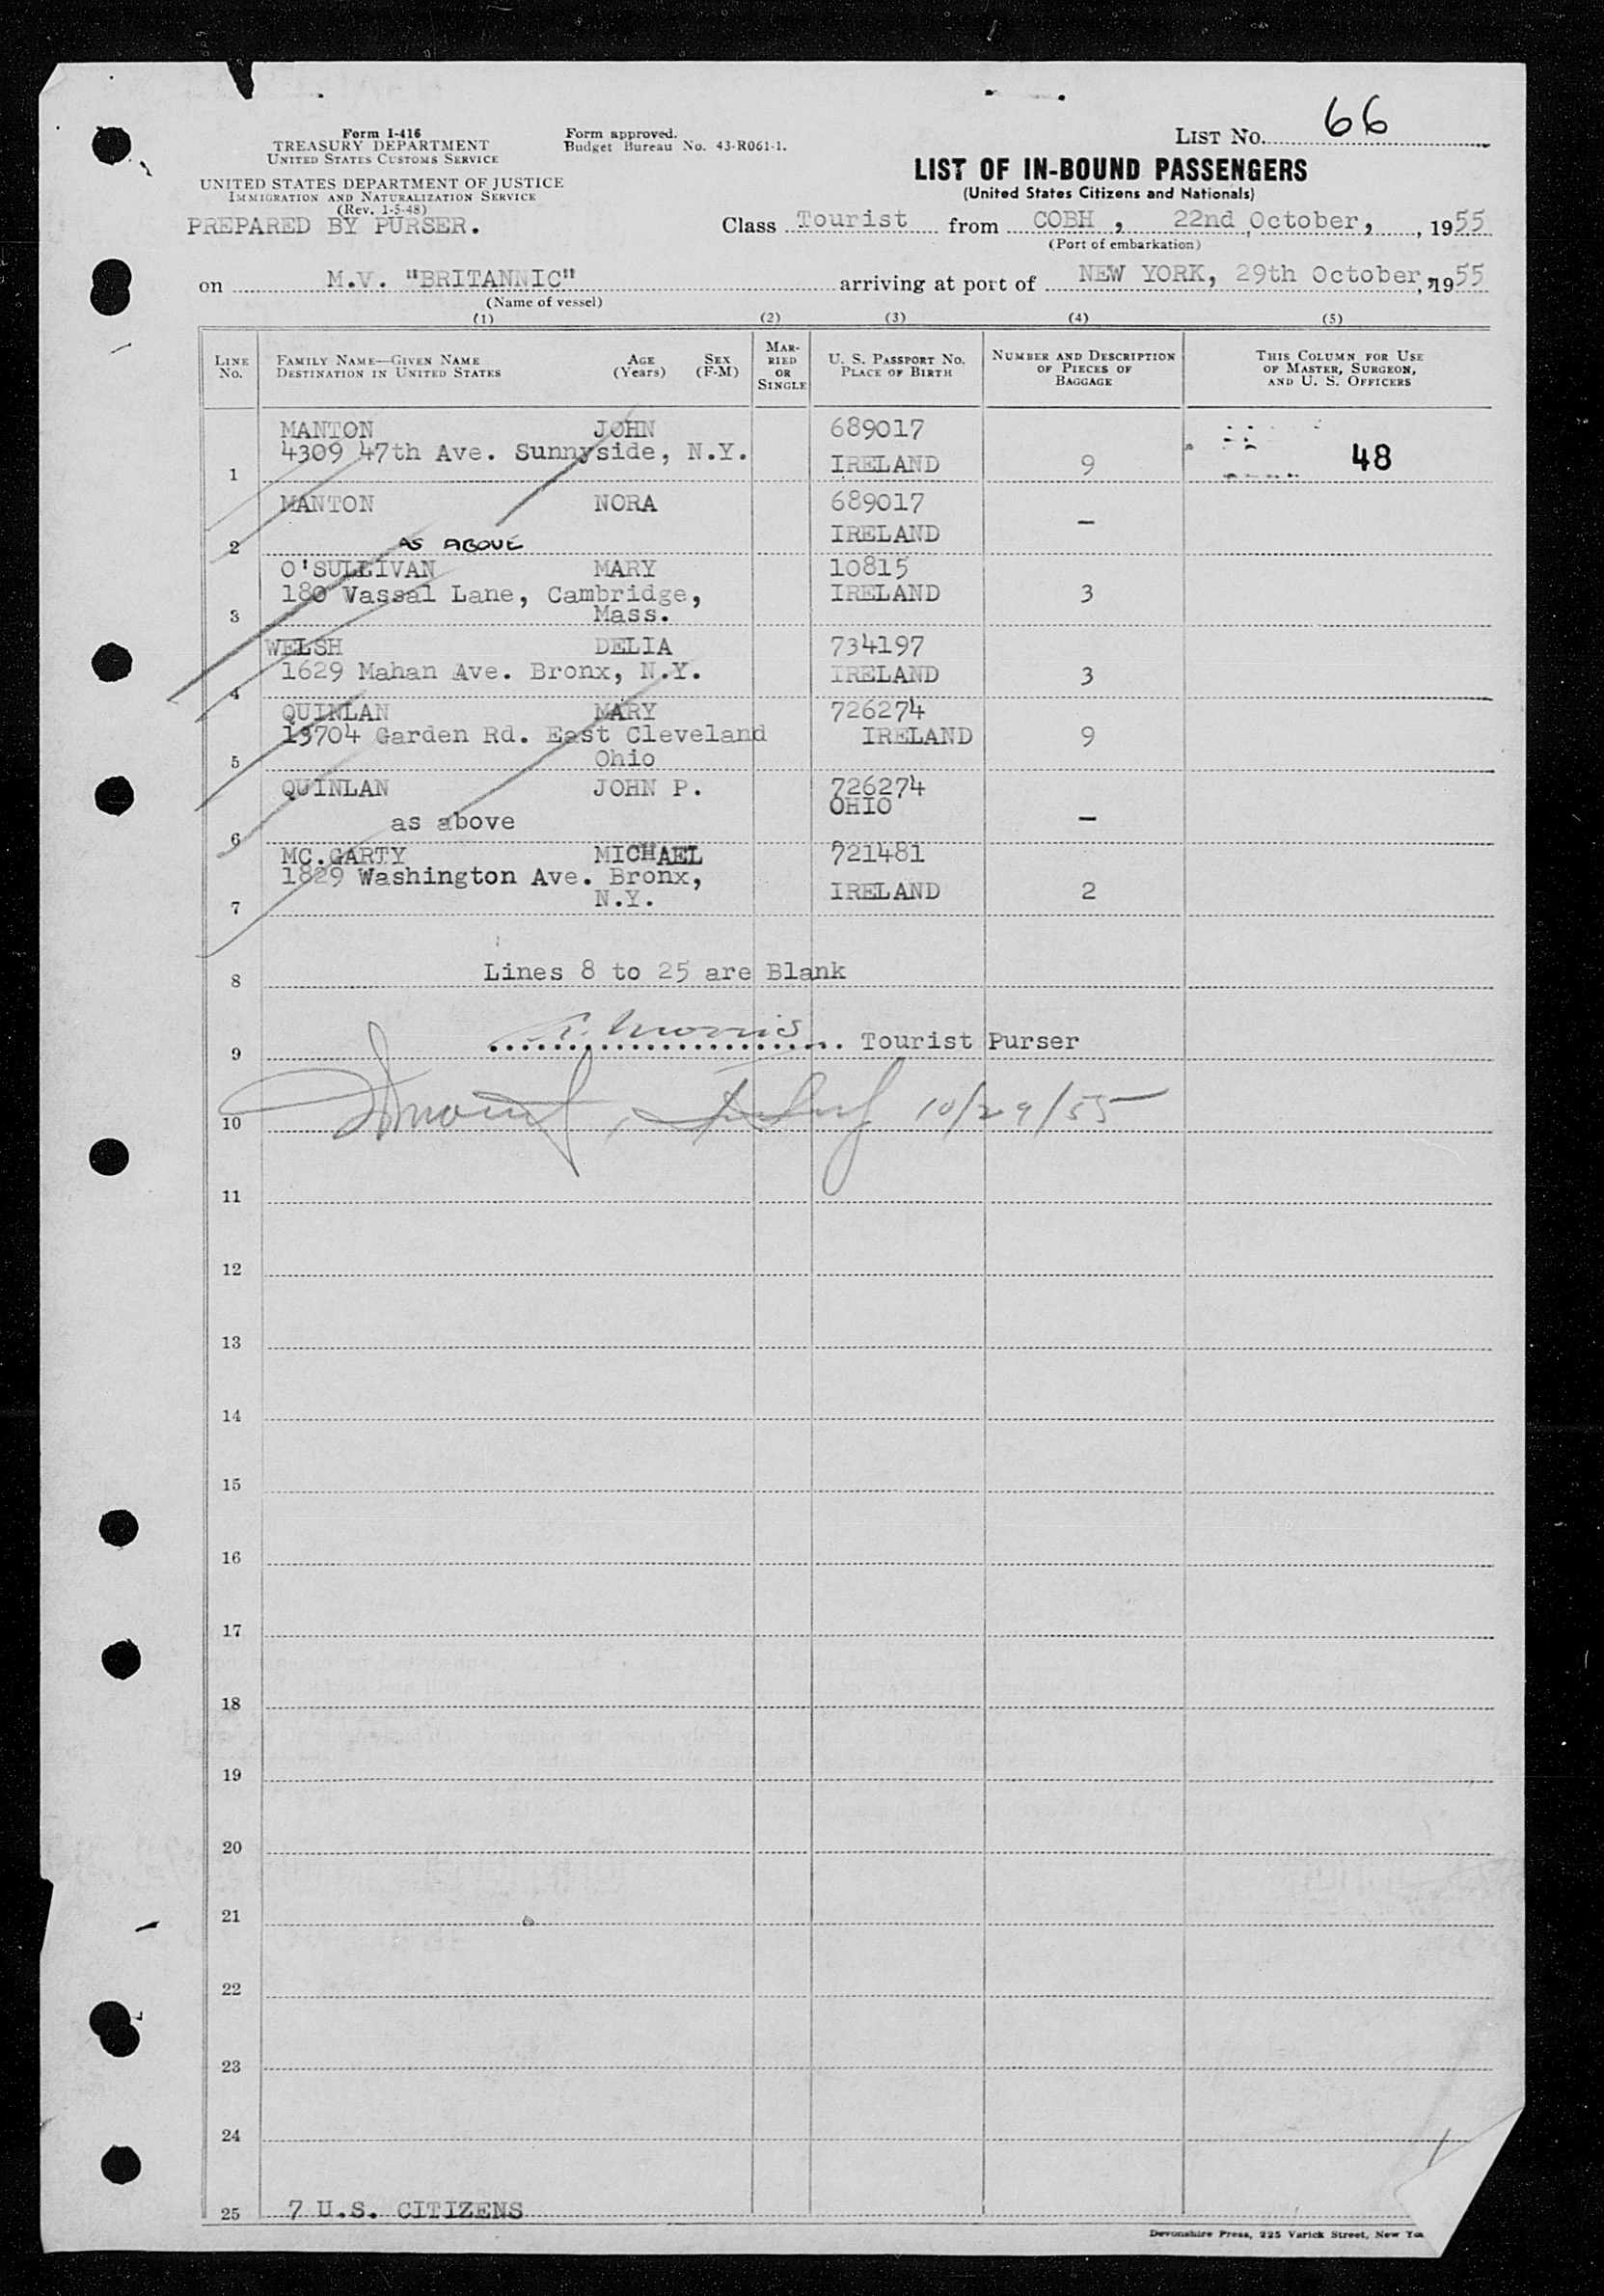 Form I-416
TREASURY DEPARTMENT
UNITED STATES CUSTOMS SERVICE
UNITED STATES DEPARTMENT OF JUSTICE
IMMIGRATION AND NATURALIZATION SERVICE
(Rev. 1-5-48)
PREPARED BY PURSER.
Form approved.
Budget Bureau No. 43-R061-1.
LIST NO. 66
LIST OF IN-BOUND PASSENGERS
(United States Citizens and Nationals)
Class Tourist from COBH, 22nd October, 1955
(Port of embarkation)
on M.V. "BRITANNIC" arriving at port of NEW YORK, 29th October, 1955
(Name of vessel)
(1) (2) (3) (4) (5)
LINE NO. FAMILY NAME—GIVEN NAME DESTINATION IN UNITED STATES AGE (Years) SEX (F-M) MARRIED OR SINGLE U. S. PASSPORT NO. PLACE OF BIRTH NUMBER AND DESCRIPTION OF PIECES OF BAGGAGE THIS COLUMN FOR USE OF MASTER, SURGEON, AND U. S. OFFICERS
MANTON JOHN 689017
4309 47th Ave. Sunnyside, N.Y.
1 IRELAND 9 48
MANTON NORA 689017
IRELAND —
2 AS ABOVE
O'SULLIVAN MARY 10815
180 Vassal Lane, Cambridge, IRELAND 3
3 Mass.
WELSH DELIA 734197
1629 Mahan Ave. Bronx, N.Y. IRELAND 3
4
QUINLAN MARY 726274
13704 Garden Rd. East Cleveland IRELAND 9
5 Ohio
QUINLAN JOHN P. 726274
OHIO
as above —
6
MC.GARTY MICHAEL 721481
1829 Washington Ave. Bronx,
N.Y. IRELAND 2
7
Lines 8 to 25 are Blank
8
Morris Tourist Purser
9
10/29/55
10
11
12
13
14
15
16
17
18
19
20
21
22
23
24
25 7 U.S. CITIZENS
Devonshire Press, 225 Varick Street, New Yo